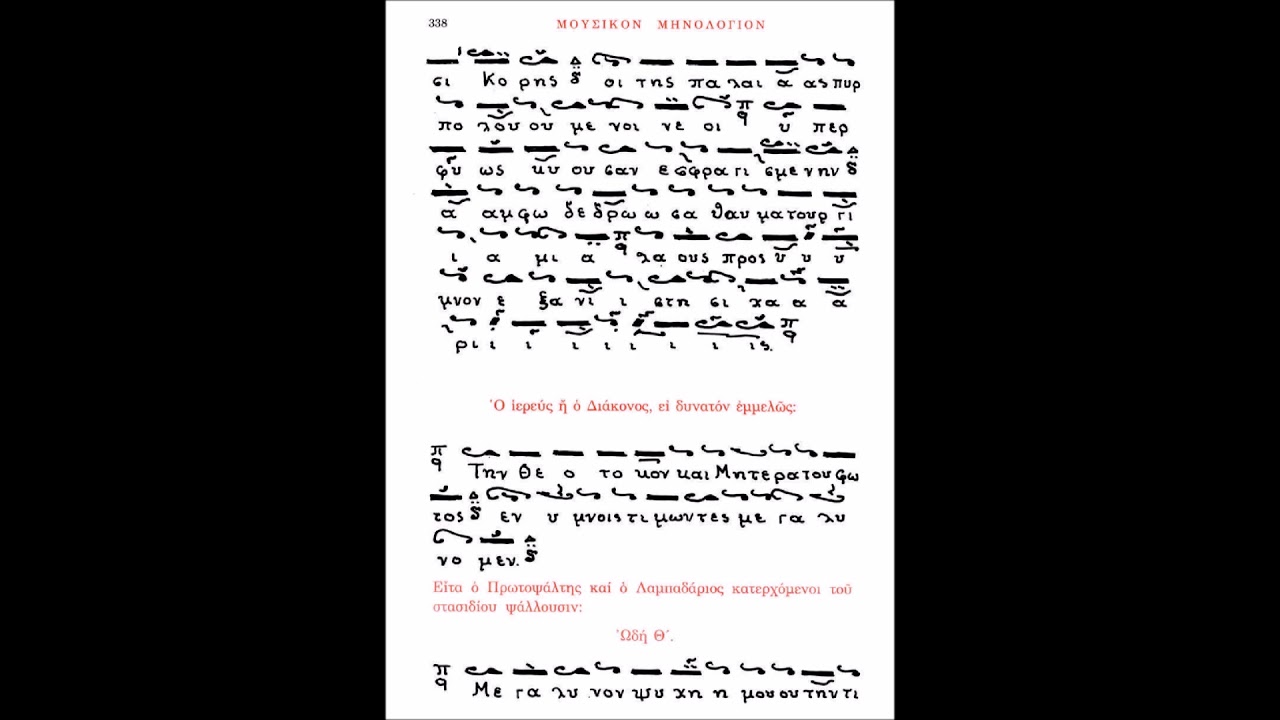 338 ΜΟΥΣΙΚΟΝ ΜΗΝΟΛΟΓΙΟΝ
σι Κο ρης οι της πα λαι α ας πυρ
πο λου ου με νοι νε οι υ περ
φυ ως κυ ου σαν ε σφρα γι σμε νην
α αμφω δε δρω ω σα θαυ ματουρ γι
ι α μι α λα ους προς υ υ υ
μνον ε ξα νι ι στη σι χα α α
ρι ι ι ι ι ι ι ις.
Ὁ ἱερεύς ἤ ὁ Διάκονος, εἰ δυνατόν ἐμμελῶς:
Την Θε ο το κον και Μητερα του φω
τος εν υ μνοις τι μωντες με γα λυ
νο μεν.
Εἶτα ὁ Πρωτοψάλτης καί ὁ Λαμπαδάριος κατερχόμενοι τοῦ
στασιδίου ψάλλουσιν:
Ὠδή Θ΄.
Με γα λυ νον ψυ χη η μου ου την τι